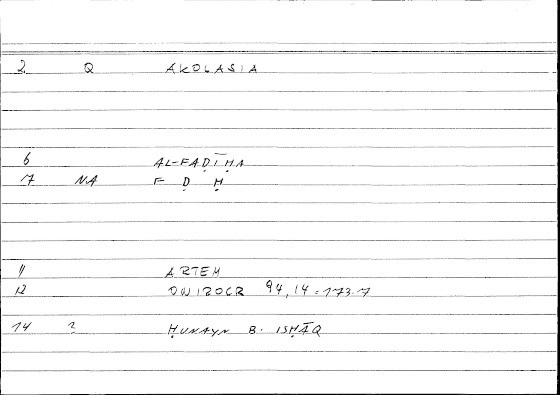 2 Q AKOLASIA
6 AL-FAḌĪḤA
17 NA F Ḍ Ḥ
11 ARTEM
12 94,14 = 173.7
14 2 ḤUNAYN B. ISḤĀQ